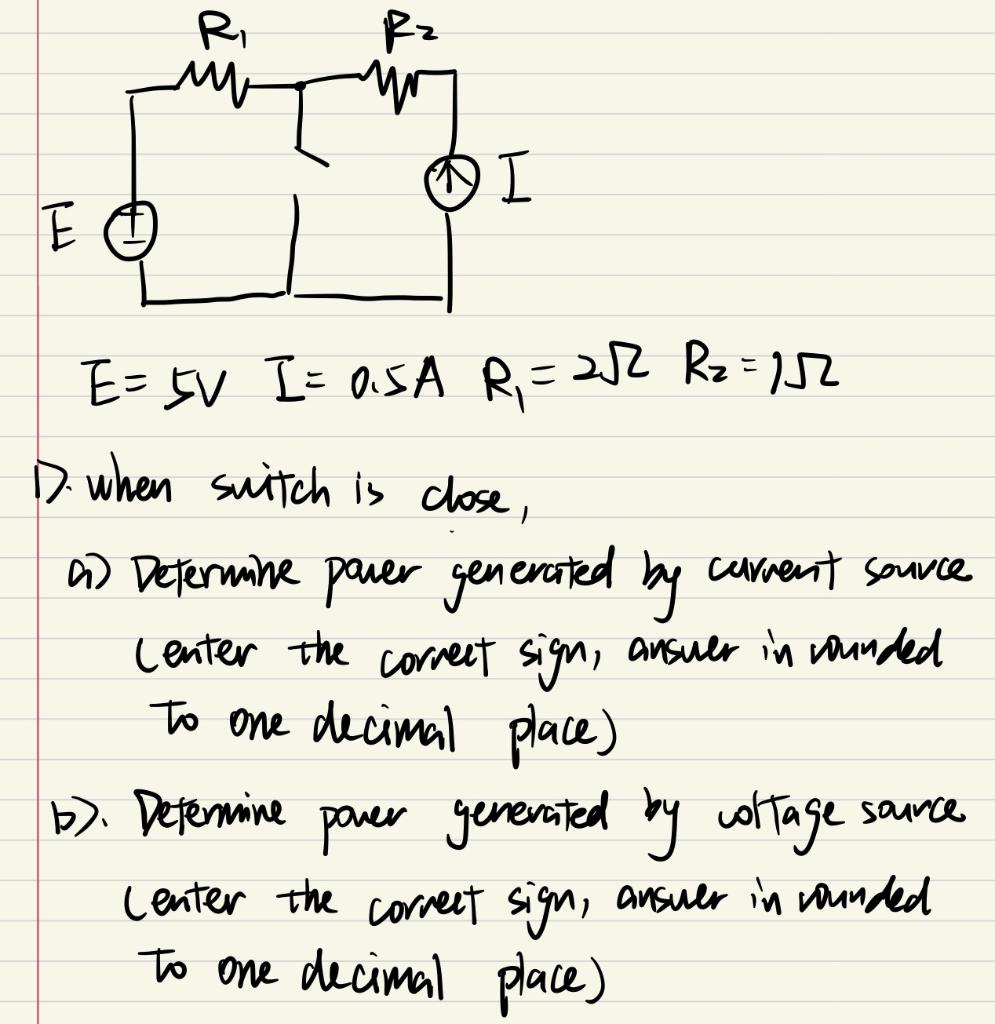 R₁ R₂
I
E
E = 5V I = 0.5A R₁ = 2Ω R₂ = 1Ω
1). when switch is close,
a) Determine power generated by current source
(enter the correct sign, answer in rounded
to one decimal place)
b). Determine power generated by voltage source
(enter the correct sign, answer in rounded
to one decimal place)